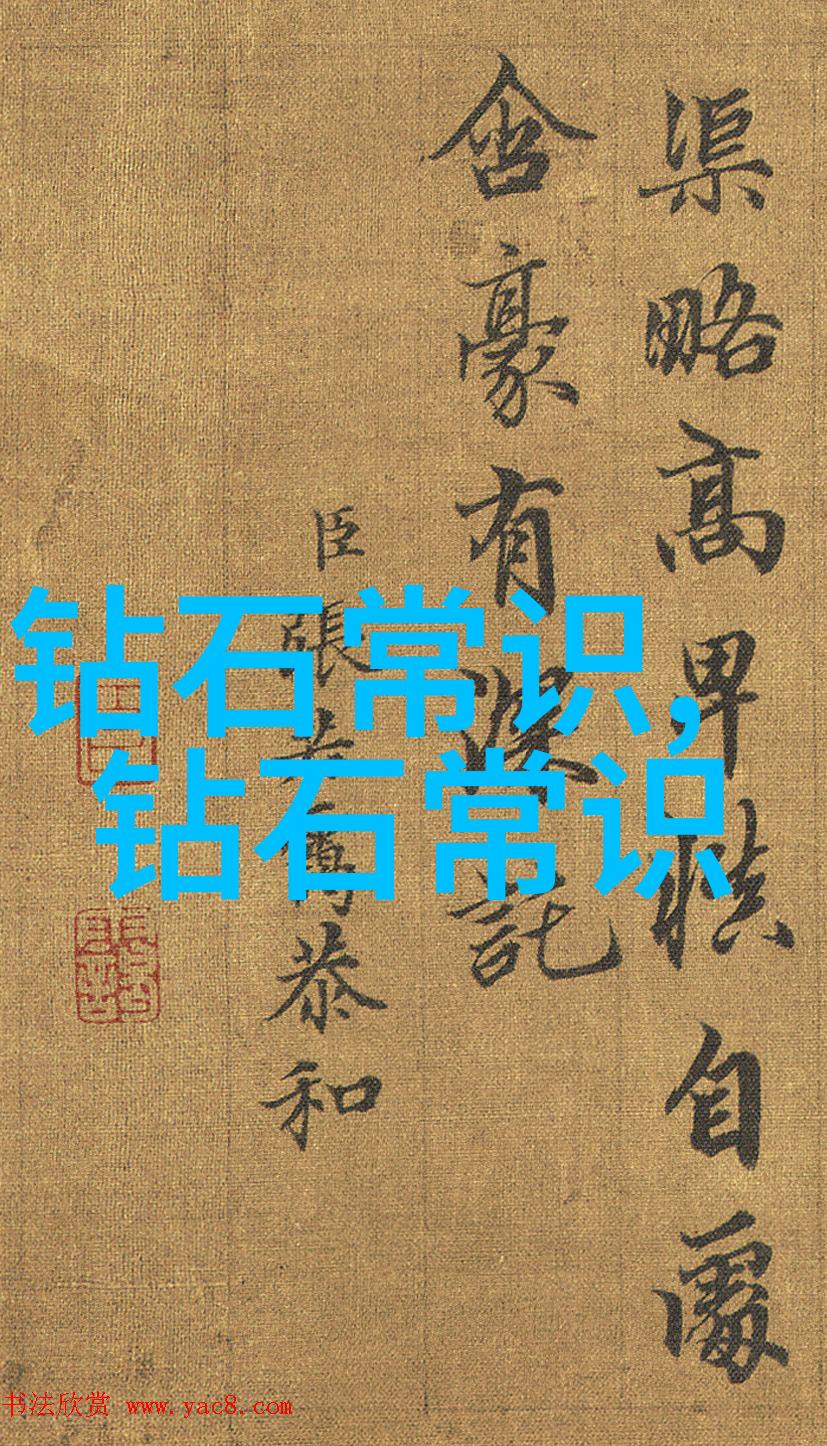 渠略高卑自
含豪有深託
臣張恭和
钻石常识,
钻石常识
书法欣赏 www.yac8.com